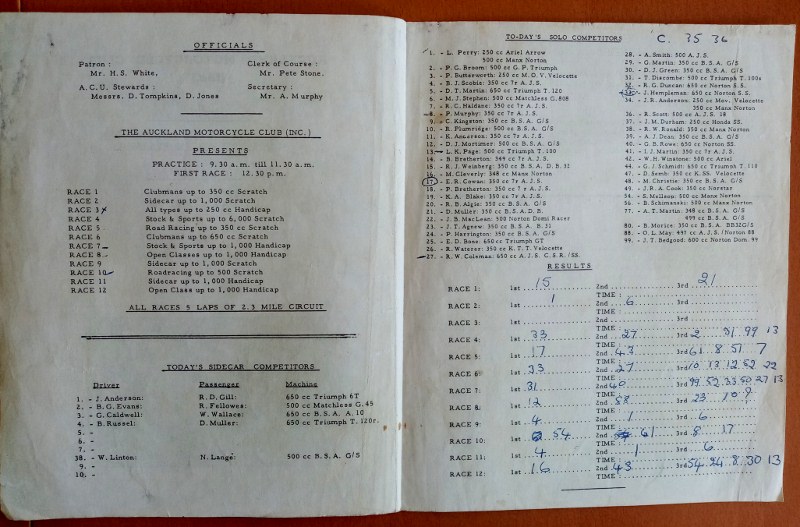 OFFICIALS
Patron : Clerk of Course :
Mr. H.S. White, Mr. Pete Stone.
A.C.U. Stewards : Secretary :
Messrs. D. Tompkins, D. Jones Mr. A. Murphy
THE AUCKLAND MOTORCYCLE CLUB (INC.)
PRESENTS
PRACTICE : 9.30 a.m. till 11.30 a.m.
FIRST RACE : 12.30 p.m.
RACE 1 Clubmans up to 350 cc Scratch
RACE 2 Sidecar up to 1,000 Scratch
RACE 3 All types up to 250 cc Handicap
RACE 4 Stock & Sports up to 6,000 Scratch
RACE 5 Road Racing up to 350 cc Scratch
RACE 6 Clubmans up to 650 cc Scratch
RACE 7 Stock & Sports up to 1,000 Handicap
RACE 8 Open Classes up to 1,000 Handicap
RACE 9 Sidecar up to 1,000 Scratch
RACE 10 Roadracing up to 500 Scratch
RACE 11 Sidecar up to 1,000 Handicap
RACE 12 Open Class up to 1,000 Handicap
ALL RACES 5 LAPS OF 2.3 MILE CIRCUIT
TODAY'S SIDECAR COMPETITORS
Driver Passenger Machine
1. - J. Anderson: R.D. Gill: 650 cc Triumph 6T
2. - B.G. Evans: R. Fellowes: 500 cc Matchless G.45
3. - G. Caldwell: W. Wallace: 650 cc B.S.A. A.10
4. - B. Russel: D. Muller: 650 cc Triumph T.120r.
5. -
6. -
7. -
38. - W. Linton: N. Lange: 500 cc B.S.A. G/S
9. -
10. -
TO-DAY'S SOLO COMPETITORS C. 35 36
1. - L. Perry: 250 cc Ariel Arrow
500 cc Manx Norton
2. - P.G. Broom: 500 cc G.P. Triumph
3. - P. Butterworth: 250 cc M.O.V. Velocette
4. - B.J. Scobie: 350 cc 7r A.J.S.
5. - D.T. Martin: 650 cc Triumph T.120
6. - M.J. Stephen: 500 cc Matchless G.80S
7. - R.C. Haldane: 350 cc 7r A.J.S.
8. - P. Murphy: 350 cc 7r A.J.S.
9. - C. Kingston: 350 cc B.S.A. G/S
10. - R. Plumridge: 500 cc Manx Norton
11. - K. Anderson: 350 cc 7r A.J.S.
12. - D.J. Mortimer: 500 cc B.S.A. G/S
13. - L.K. Page: 500 cc Triumph T.100
14. - B. Bretherton: 349 cc 7r A.J.S.
15. - R.J. Weinberg: 350 cc B.S.A. D.B. 32
16. - M. Cleverly: 348 cc Manx Norton
17. - E.R. Cowan: 350 cc 7r A.J.S.
18. - P. Bretherton: 350 cc 7 r A.J.S.
19. - K.A. Blake: 350 cc 7r A.J.S.
20. - R.B. Algie: 500 cc B.S.A. G/S
21. - D. Muller: 350 cc B.S.A D.B.
22. - J.B. MacLeon: 500 Norton Domi Racer
23. - J.T. Agnew: 350 cc B.S.A. B.31
24. - P. Herrington: 350 cc B.S.A. G/S
25. - E.D. Bone: 650 cc Triumph GT
26. - R. Waterer: 350 cc K.T.T. Velocette
27. - R.W. Coleman: 652 cc A.J.S. C.S.R./SS.
28. - A. Smith: 500 A.J.S.
29. - G. Martin: 350 cc B.S.A. G/S
30. - D.J. Green: 350 cc B.S.A. G/S
31. - T. Discombe: 500 cc Triumph T.100s
32. - R.G. Duncan: 650 cc Norton S.S.
J. Hempleman: 650 cc Norton S.S.
34. - J.R. Anderson: 250 cc Mov. Velocette
350 cc Manx Norton
36. - R. Scott: 500 cc A.J.S. 18
37. - J.M. Durham: 250 cc Honda SS.
38. - R.W. Ronald: 350 cc Manx Norton
39. - A.J. Dean: 350 cc B.S.A. G/S
40. - G.B. Rowe: 650 cc Norton SS.
41. - I.J. Martin: 350 cc 7r A.J.S.
42. - W.H. Winstone: 500 cc Ariel
44. - G.J. Schmidt: 650 cc Triumph T.110
47. - D. Semb: 350 cc K.SS. Velocette
48. - M. Christie: 350 cc B.S.A. G/S
49. - J.B.A. Cook: 350 cc Norstar
54. - E. McIleon: 500 cc Manx Norton
56. - B. Schimanski: 500 cc Manx Norton
77. - A.T. Martin: 348 cc B.S.A. G/S
499 cc B.S.A. G/S
80. - B. Morice: 350 cc B.S.A. BB32G/S
88. - O.L. May: 497 cc A.J.S. /Norton 88
99. - J.T. Bedgood: 600 cc Norton Dom. 99
RESULTS
RACE 1: 1st 15 2nd 3rd 21
TIME :
RACE 2: 1st 1 2nd 6 3rd
TIME :
RACE 3: 1st 2nd 3rd
TIME :
RACE 4: 1st 33 2nd 27 3rd 2 31 99 13
TIME :
RACE 5: 1st 17 2nd 43 3rd 61 8 51 7
TIME :
RACE 6: 1st 33 2nd 27 3rd 10 13 12 52 22
TIME :
RACE 7: 1st 31 2nd 40 3rd 99 52 33 50 27 13
TIME :
RACE 8: 1st 12 2nd 58 3rd 23 10
TIME :
RACE 9: 1st 4 2nd 1 3rd 6
TIME :
RACE 10: 1st 54 2nd 61 3rd 8 17
TIME :
RACE 11: 1st 4 2nd 1 3rd 6
TIME :
RACE 12: 1st 16 2nd 43 3rd 54 34 8 30 13
TIME :